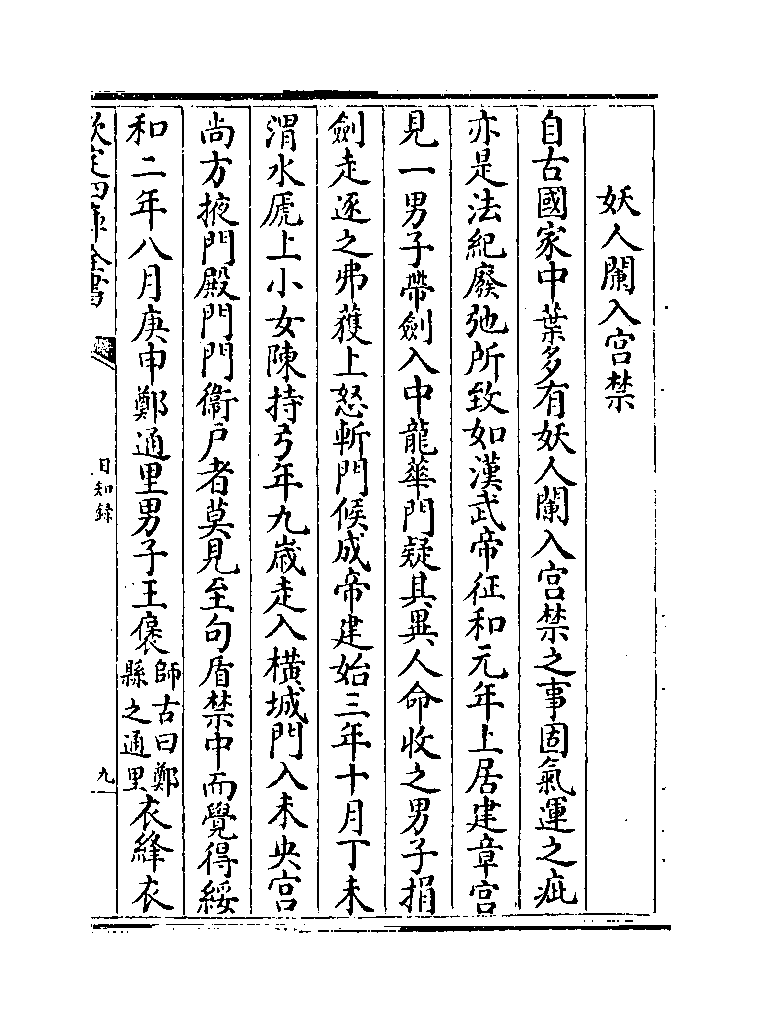 妖人闌入宫禁
自古國家中葉多有妖人闌入宫禁之事固氣運之疵
亦是法紀廢弛所致如漢武帝征和元年上居建章宫
見一男子帶劍入中龍華門疑其異人命收之男子捐
劍走逐之弗獲上怒斬門候成帝建始三年十月丁未
渭水虒上小女陳持弓年九歲走入橫城門入未央宫
尚方掖門殿門門衞户者莫見至句盾禁中而覺得綏
和二年八月庚申鄭通里男子王襃師古曰鄭縣之通里衣絳衣
欽定四庫全書
日知錄
九